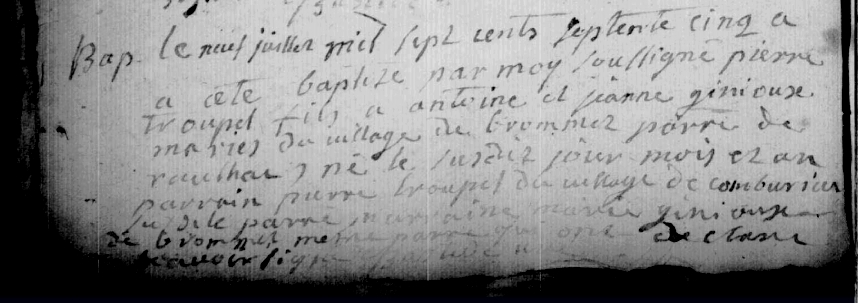 Bap. le neuf juillet miel sept cents septente cinq a
a ete baptize par moy soussigné pierre
troupel fils a antoine et jeanne ginioux
maries du village de brommez parre de
raulhac né le susdit jour mois et an
parrain pierre troupel du village de comburieu
susdite parre marraine marie ginioux
de brommez meme parre qui ont declare
scavoir signe